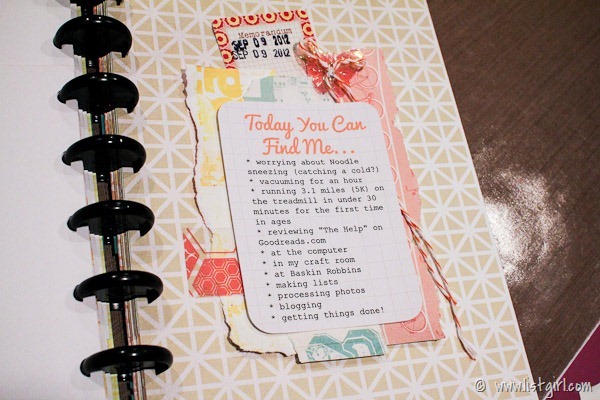 Memorandum
SEP 09 2012
SEP 09 2012
Today You Can
Find Me...
* worrying about Noodle
sneezing (catching a cold?)
* vacuuming for an hour
* running 3.1 miles (5K) on
the treadmill in under 30
minutes for the first time
in ages
* reviewing "The Help" on
Goodreads.com
* at the computer
* in my craft room
* at Baskin Robbins
* making lists
* processing photos
* blogging
* getting things done!
© www.listgirl.com